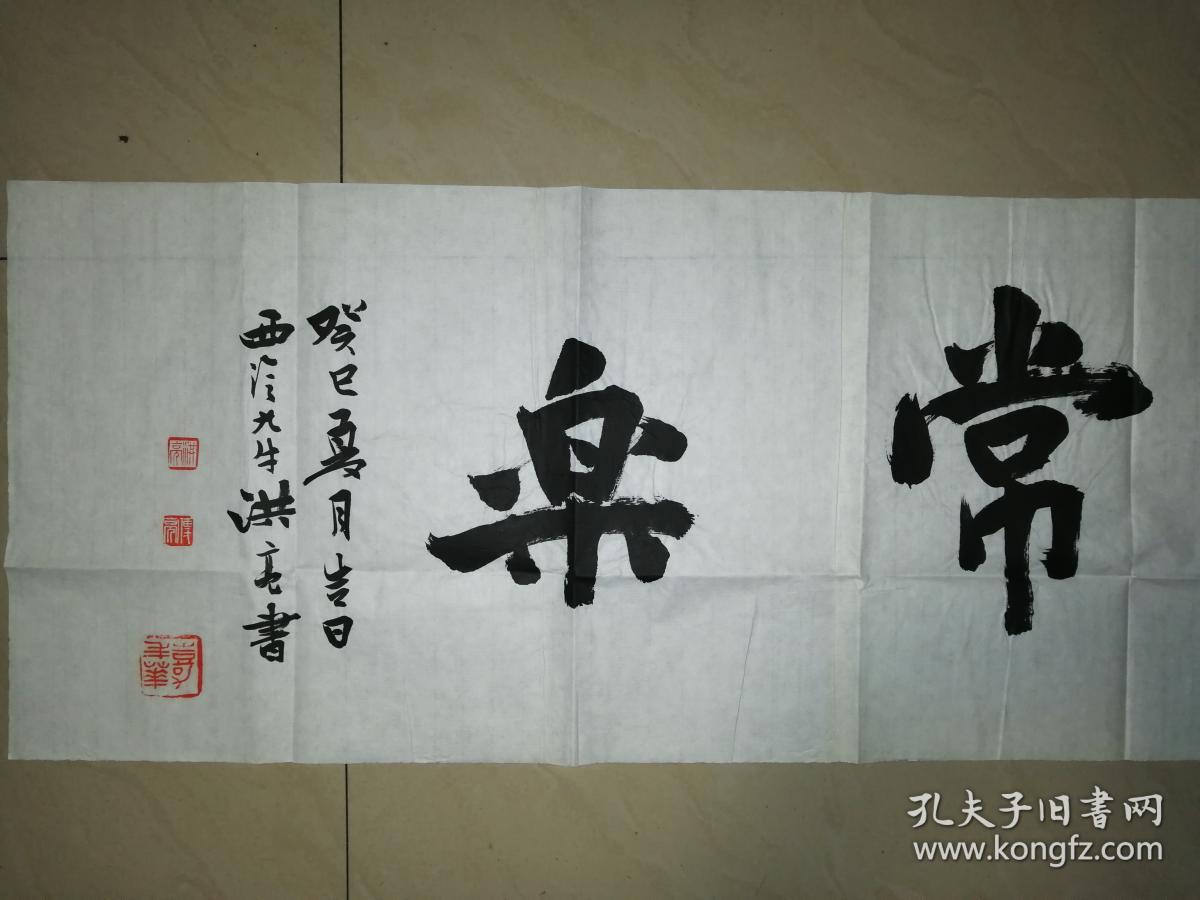 常樂
癸巳夏月吉日
西泠九牛洪亮書
孔夫子旧书网
www.kongfz.com